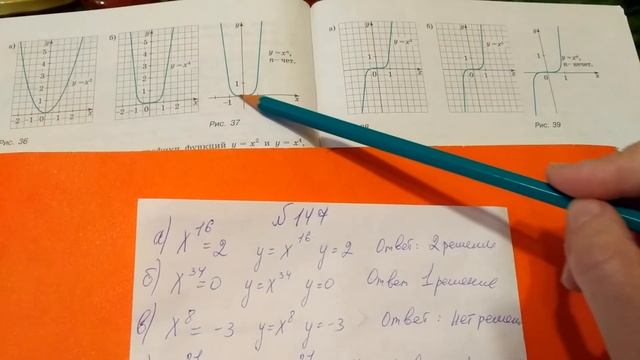 а)
б)
y = x²
y = x⁴
y = xⁿ,
n – чет.
Рис. 36
Рис. 37
а)
б)
y = x³
y = x⁵
y = xⁿ,
n – нечет.
Рис. 39
функций y = x² и y = x⁴,
№ 147
а) x¹⁶ = 2 y = x¹⁶ y = 2 Ответ: 2 решение
б) x³⁴ = 0 y = x³⁴ y = 0 Ответ 1 решение
в) x⁸ = -3 y = x⁸ y = -3 Ответ: Нет решен